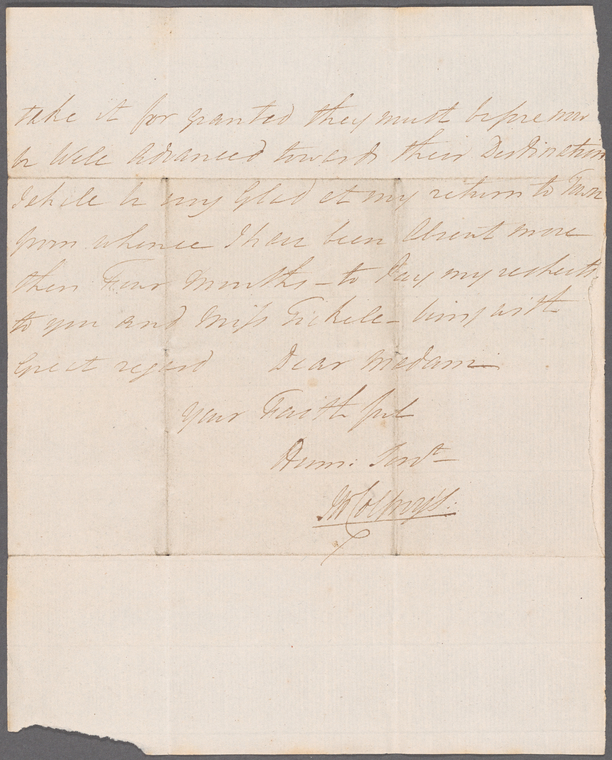 take it for granted they must before now
be Well Advanced towards their Destination
I shall be very Glad at my return to Town
from whence I have been Absent more
then Four Months – to Pay my respects
to you and Miss Tickell – being with
Great regard Dear Madam
your Faithful
Hum: Servt